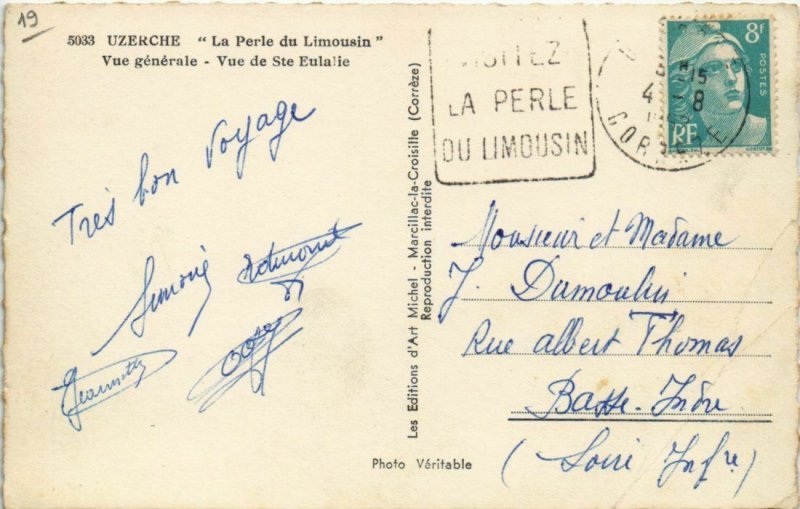 19
5033 UZERCHE " La Perle du Limousin "
Vue générale - Vue de Ste Eulalie
Très bon voyage
Simone
Edmond
Jeannette
Les Editions d'Art Michel - Marcillac-la-Croisille (Corrèze)
Reproduction interdite
Photo Véritable
VISITEZ
LA PERLE
DU LIMOUSIN
15
4 8
CORRÈZE
8F
POSTES
RF
Monsieur et Madame
J. Dumoulin
Rue albert Thomas
Basse-Indre
(Loire Infre)